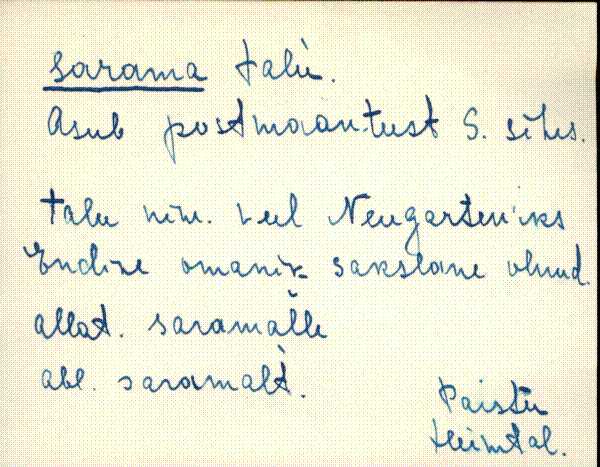 Sarama talu.
Asub postmaantust S. sihis.
Talu nim. veel Neugarten'iks
Endine omanik sakslane olnud.
allat. saramalle
abl. saramalt.
Paistu
Heimtal.